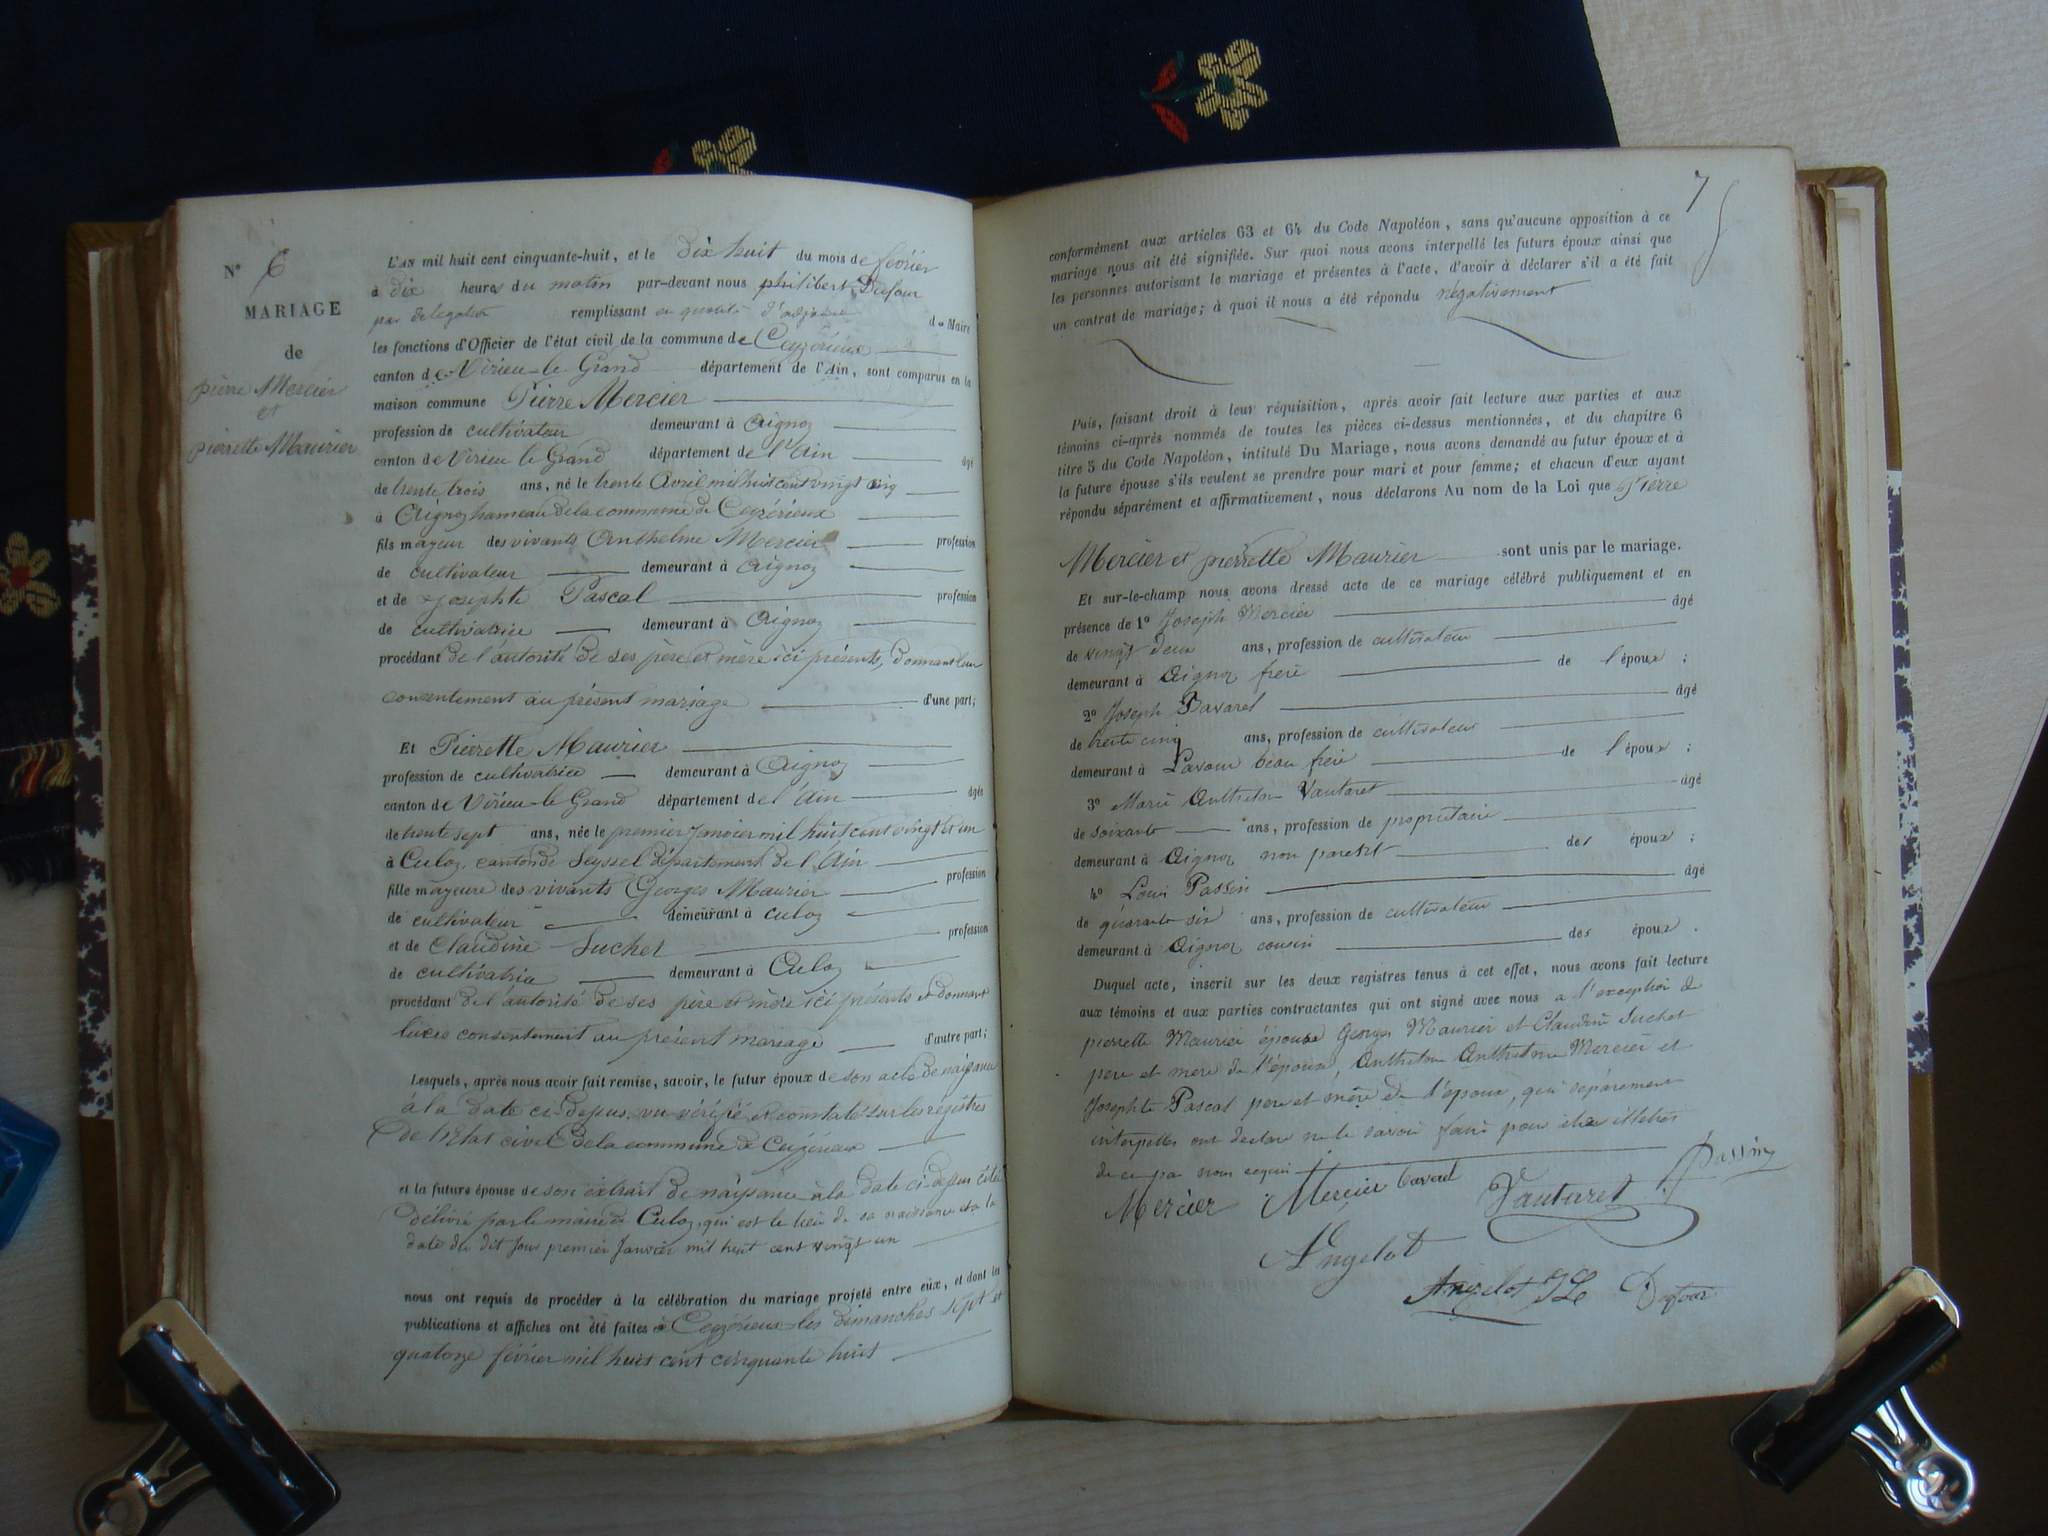 N° 6
MARIAGE
de
pierre Mercier
et
pierrette Maurier
L'AN mil huit cent cinquante-huit, et le dix huit du mois de février
à dix heures du matin par-devant nous philibert Dufour
par délégation remplissant en qualité d'adjoint du Maire
les fonctions d'Officier de l'état civil de la commune de Ceyzérieux
canton de Virieu-le Grand département de l'Ain, sont comparus en la
maison commune Pierre Mercier
profession de cultivateur demeurant à Aignoz
canton de Virieu le Grand département de l'Ain âgé
de trente trois ans, né le trente Avril mil huit cent vingt cinq
à Aignoz hameau de la commune de Ceyzérieux
fils mayeur des vivants Anthelme Mercier profession
de cultivateur demeurant à Aignoz
et de Josephte Pascal profession
de cultivatrice demeurant à Aignoz
procédant de l'autorité de ses père et mère ici présents, donnant leur
consentement au présent mariage d'une part;
Et Pierrette Maurier
profession de cultivatrice demeurant à Aignoz
canton de Virieu-le Grand département de l'Ain âgée
de trente sept ans, née le premier Janvier mil huit cent vingt et un
à Culoz, canton de Seyssel département de l'Ain
fille mayeure des vivants Georges Maurier profession
de cultivateur demeurant à Culoz
et de Claudine Suchet profession
de cultivatrice demeurant à Culoz
procédant de l'autorité de ses père et mère ici présents et donnant
leurs consentement au présent mariage d'autre part;
Lesquels, après nous avoir fait remise, savoir, le futur époux de son acte de naissance
à la date ci-dessus vu vérifié et constaté sur les registres
de l'Etat civil de la commune de Ceyzérieux
et la future épouse de son extrait de naissance à la date ci-dessus citée
délivré par le maire de Culoz, qui est le lieu de sa naissance et à la
date du dit jour premier Janvier mil huit cent vingt un
nous ont requis de procéder à la célébration du mariage projeté entre eux, et dont les
publications et affiches ont été faites à Ceyzérieux les dimanches sept et
quatorze février mil huit cent cinquante huit
7
conformément aux articles 63 et 64 du Code Napoléon, sans qu'aucune opposition à ce
mariage nous ait été signifiée. Sur quoi nous avons interpellé les futurs époux ainsi que
les personnes autorisant le mariage et présentes à l'acte, d'avoir à déclarer s'il a été fait
un contrat de mariage; à quoi il nous a été répondu négativement
Puis, faisant droit à leur réquisition, après avoir fait lecture aux parties et aux
témoins ci-après nommés de toutes les pièces ci-dessus mentionnées, et du chapitre 6
titre 5 du Code Napoléon, intitulé Du Mariage, nous avons demandé au futur époux et à
la future épouse s'ils veulent se prendre pour mari et pour femme; et chacun d'eux ayant
répondu séparément et affirmativement, nous déclarons Au nom de la Loi que Pierre
Mercier et pierrette Maurier sont unis par le mariage.
Et sur-le-champ nous avons dressé acte de ce mariage célébré publiquement et en
présence de 1° Joseph Mercier âgé
de vingt deux ans, profession de cultivateur
demeurant à Aignoz frère de l'époux ;
2° Joseph Bavarel âgé
de trente cinq ans, profession de cultivateur
demeurant à Lavour beau frère de l'époux ;
3° Marie Anthelme Vautaret âgé
de soixante ans, profession de propriétaire
demeurant à Aignoz non parent des époux ;
4° Louis Passin âgé
de quarante six ans, profession de cultivateur
demeurant à Aignoz cousin des époux.
Duquel acte, inscrit sur les deux registres tenus à cet effet, nous avons fait lecture
aux témoins et aux parties contractantes qui ont signé avec nous a l'exception de
pierrette Maurier épouse Georges Maurier et Claudine Suchet
pere et mere de l'épouse, Anthelme Anthelme Mercier et
Josephte Pascal pere et mère de l'époux, qui séparément
interpellés ont déclaré ne le savoir faire pour être illettrés
de ce par nous requis
Mercier Mercier Vautaret Passin
Angelot
Angelot Dufour